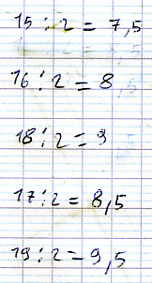 15 : 2 = 7,5
16 : 2 = 8
18 : 2 = 9
17 : 2 = 8,5
19 : 2 = 9,5